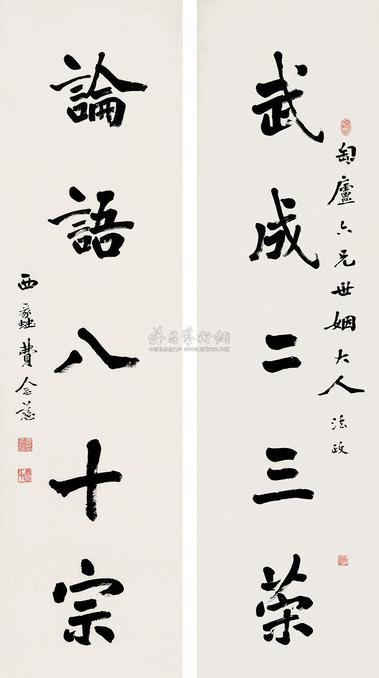 廬六兄世姻大人法政
武成二三策
論語八十宗
西蠡費念慈
雅昌藝術網
www.artron.net